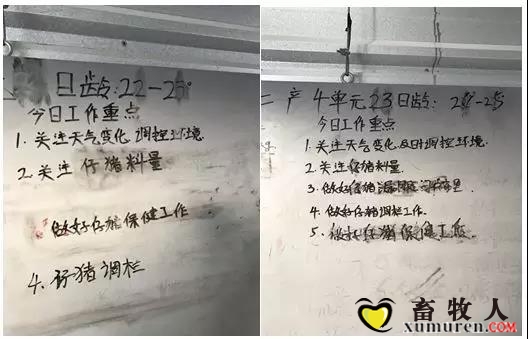 日龄:22-2
今日工作重点
1. 关注天气变化,调控环境
2. 关注仔猪料量
做好仔猪保健工作
4. 仔猪调栏
二产4单元23日龄: 2
今日工作重点
1. 关注天气变化及时调控环境.
2. 关注仔猪料量.
3. 做好仔猪
4. 做好仔猪调栏工作.
5. 做好仔猪保健工作.
畜牧人
xumuren.com